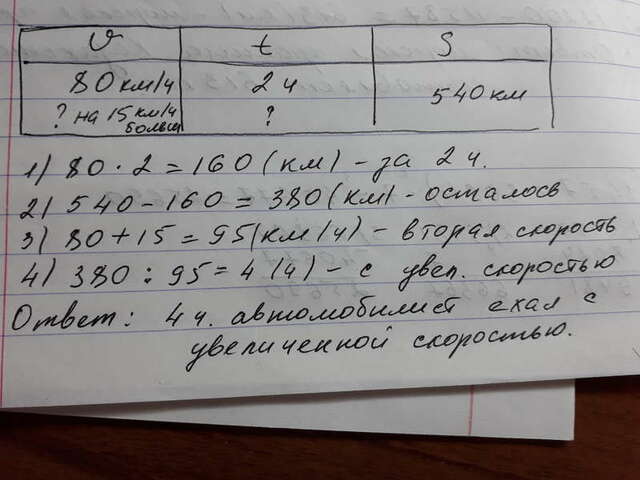 v t S
80 км/ч 2 ч 540 км
? на 15 км/ч ?
больше
1) 80 · 2 = 160 (км) - за 2 ч.
2) 540 - 160 = 380 (км) - осталось
3) 80 + 15 = 95 (км/ч) - вторая скорость
4) 380 : 95 = 4 (ч) - с увел. скоростью
Ответ: 4 ч. автомобилист ехал с
увеличенной скоростью.